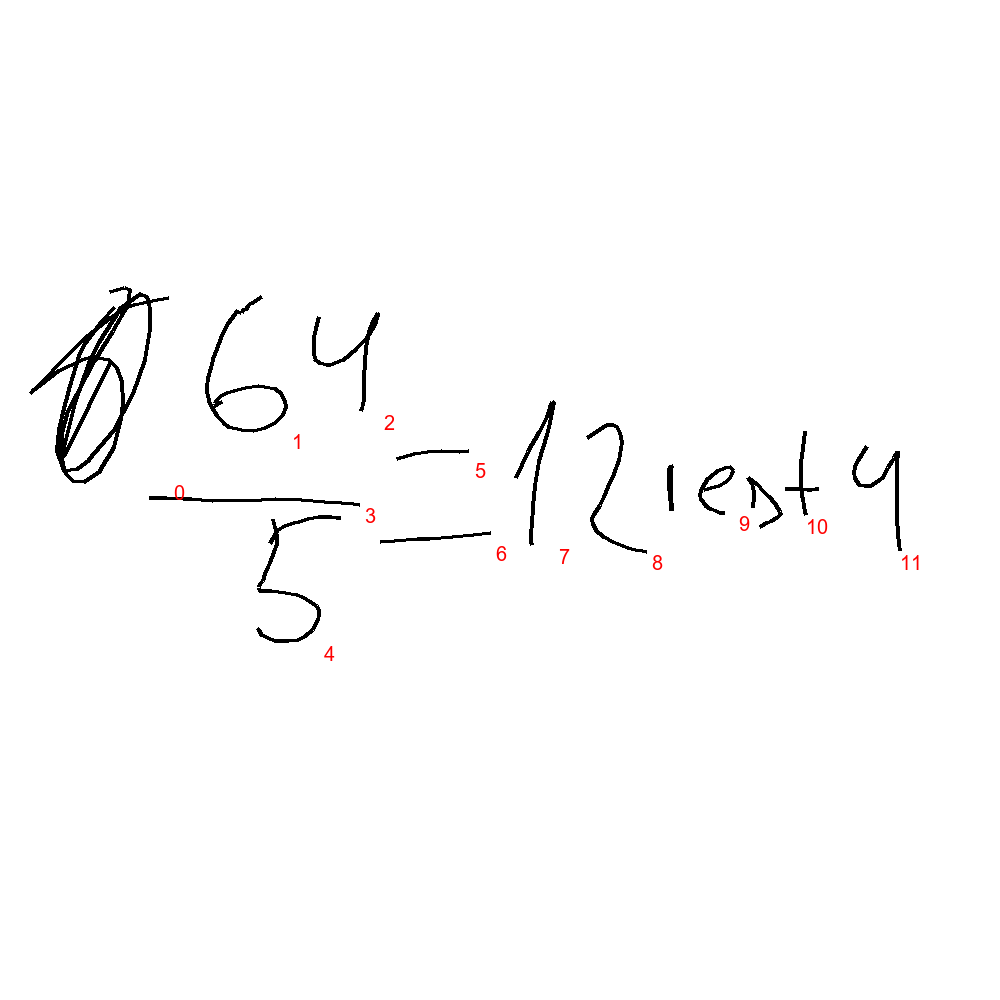 64
5
= 12 rest 4
0
1
2
3
4
5
6
7
8
9
10
11